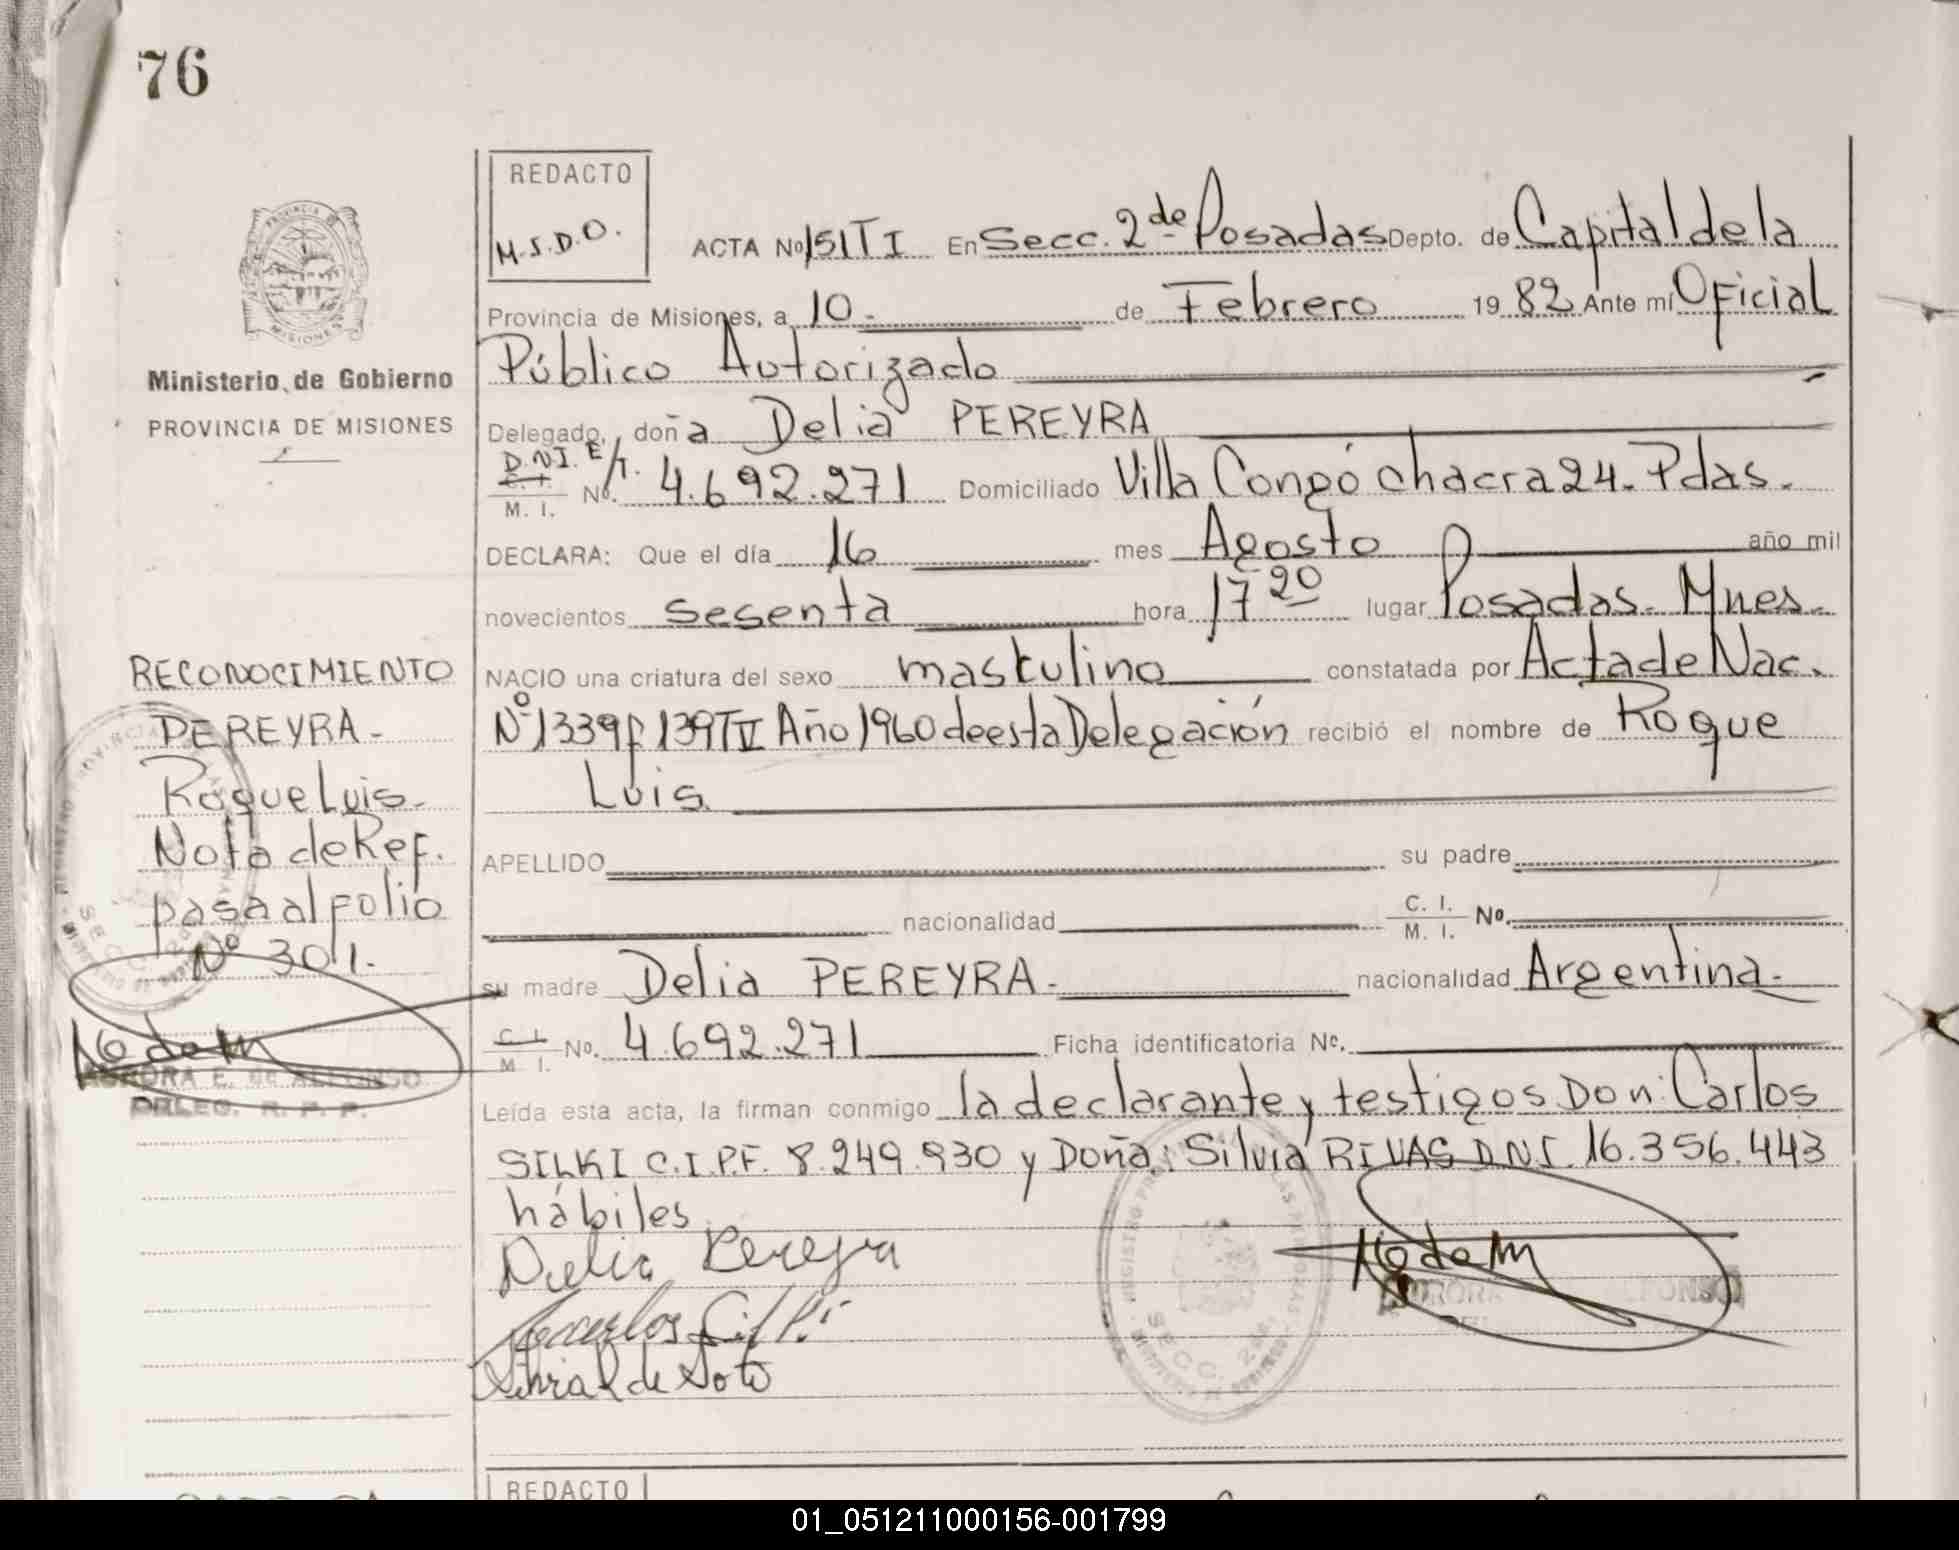 76
REDACTO
M.S.D.O.
ACTA Nº 151 T I En Secc. 2 de Posadas Depto. de Capital de la
Provincia de Misiones, a 10.- de Febrero 1982 Ante mí Oficial
Público Autorizado
Delegado, doña Delia PEREYRA
D.N.I. E/T.
M. I. No. 4.692.271 Domiciliado Villa Congó chacra 24. Pdas.
DECLARA: Que el día 16 mes Agosto año mil
novecientos sesenta hora 17 20 lugar Posadas. Mnes.
NACIO una criatura del sexo maskulino constatada por Acta de Nac.
Nº 1339 f 139 T II Año 1960 de esta Delegación recibió el nombre de Roque
Luis.
APELLIDO su padre
nacionalidad C. I. M. I. No.
su madre Delia PEREYRA.- nacionalidad Argentina.-
C. I. M. I. No. 4.692.271 Ficha identificatoria No.
Leída esta acta, la firman conmigo la declarante y testigos Don: Carlos
SILKI C.I.P.F. 8.249.930 y Doña: Silvia RIVAS D.N.I. 16.356.443
hábiles.
Delia Pereyra
Ministerio de Gobierno
PROVINCIA DE MISIONES
RECONOCIMIENTO
PEREYRA-
Roque Luis.
Nota de Ref.
pasa al folio
Nº 301.
AURORA E. de ALFONSO
DELEG. R. P. P.
SECC. 2da.
REDACTO
01_051211000156-001799